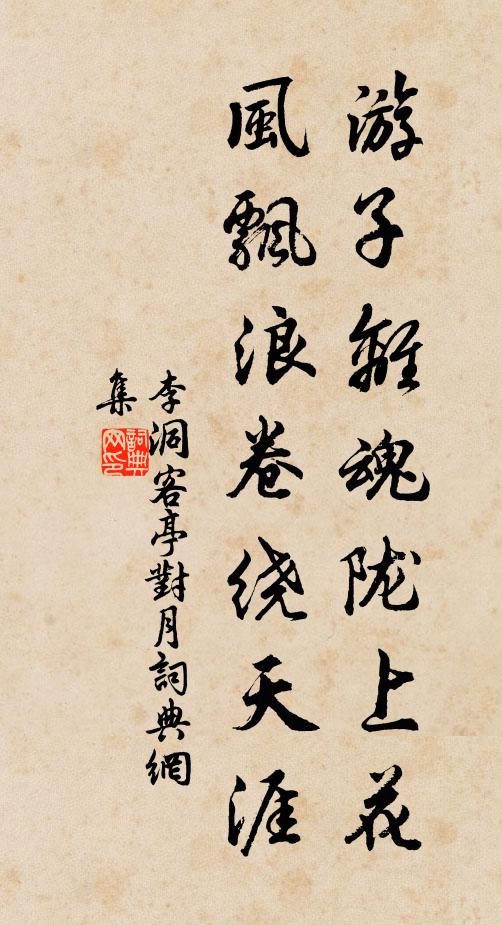 游子離魂陇上花
風飄浪卷绕天涯
李洞客亭對月詞典網
集
詞典网印